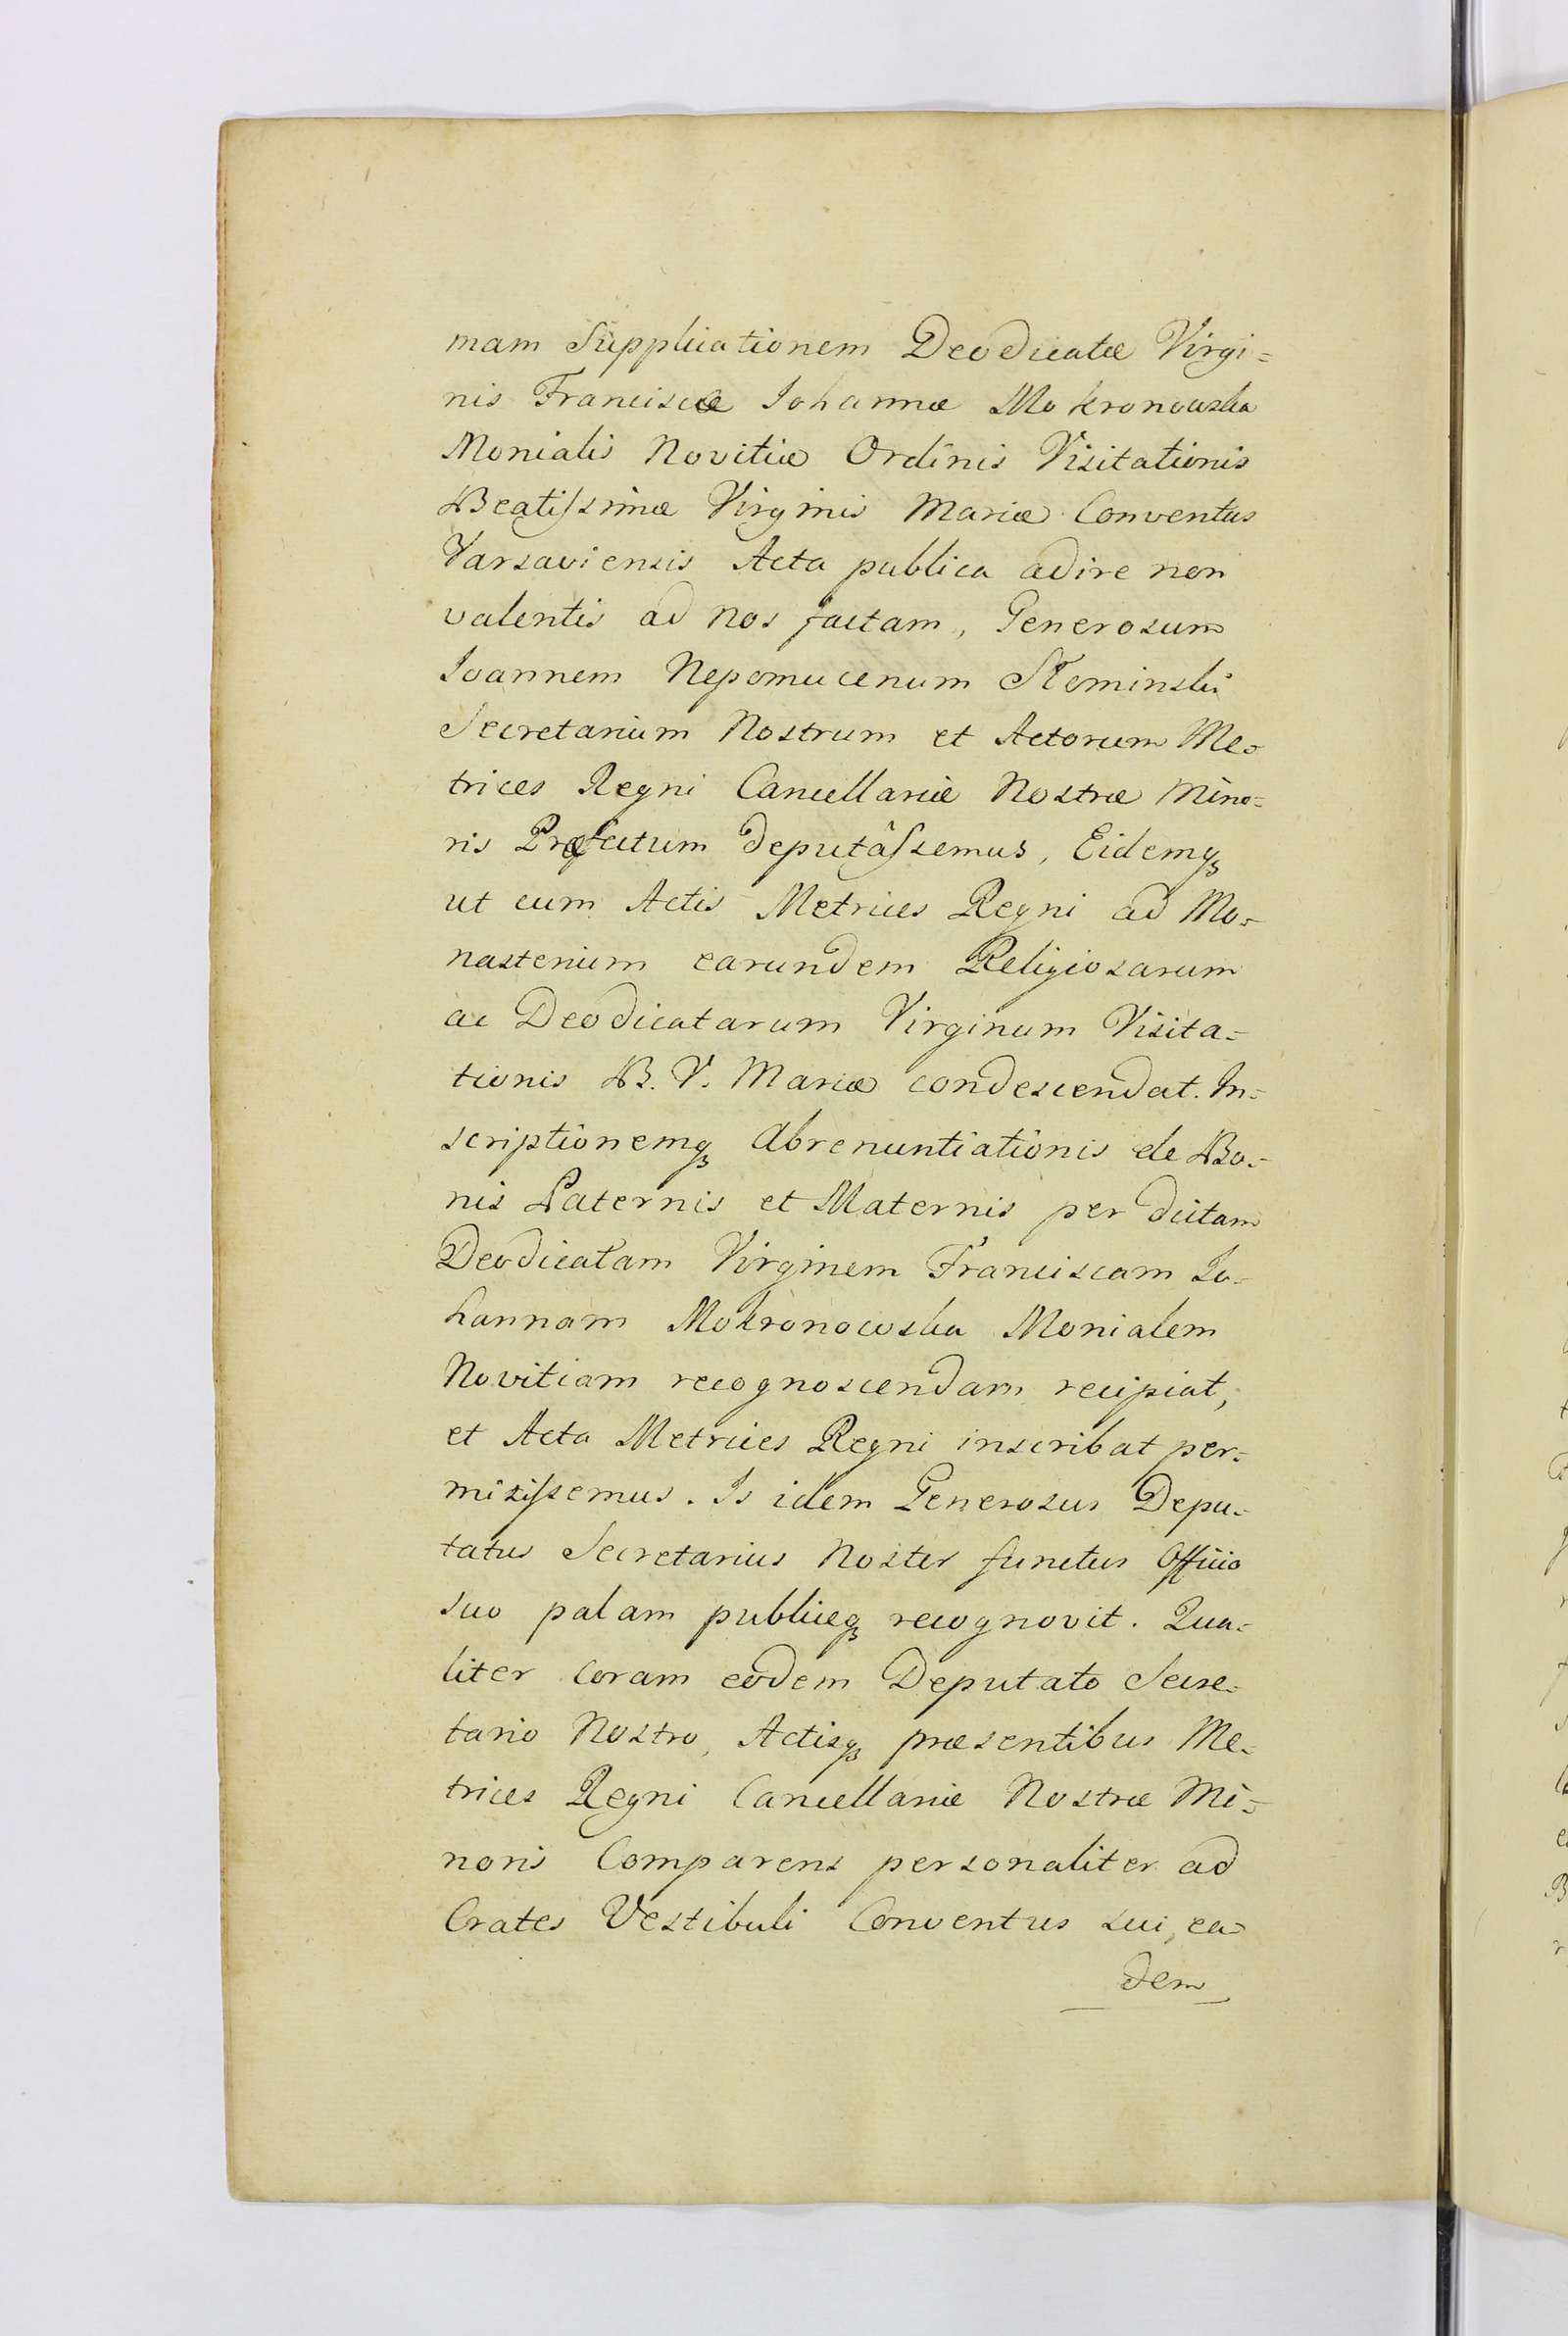 mam Supplicationem Deodicatæ Virgi=
nis Franciscæ Johannæ Mokronowska
Monialis Novitiæ Ordinis Visitationis
Beatiſsimæ Virginis Mariæ Conventus
Varsaviensis Acta publica adire non
valentis ad Nos factam, Generosum
Joannem Nepomucenum Słominski
Secretarium Nostrum et Actorum Me=
trices Regni Cancellariæ Nostræ Mino=
ris Præfectum deputâſsemus, Eidemqꝫ
ut cum Actis Metrices Regni ad Mo=
nasterium earundem Religiosarum
ac Deodicatarum Virginum Visita=
tionis B. V. Mariæ condescendat. In=
scriptionemqꝫ Abrenuntiationis de Bo=
nis Paternis et Maternis per dictam
Deodicatam Virginem Franciscam Jo=
hannam Mokronowska Monialem
Novitiam recognoscendam recipiat,
et Acta Metrices Regni inscribat per=
misiſsemus. Is idem Generosus Depu=
tatus Secretarius Noster functus Officio
suo palam publiceqꝫ recognovit. Qua=
liter coram eodem Deputato Secre=
tario Nostro, Actisqꝫ præsentibus Me=
trices Regni Cancellariæ Nostræ Mi=
noris Comparens personaliter ad
Crates Vestibuli Conventus sui, ea
dem